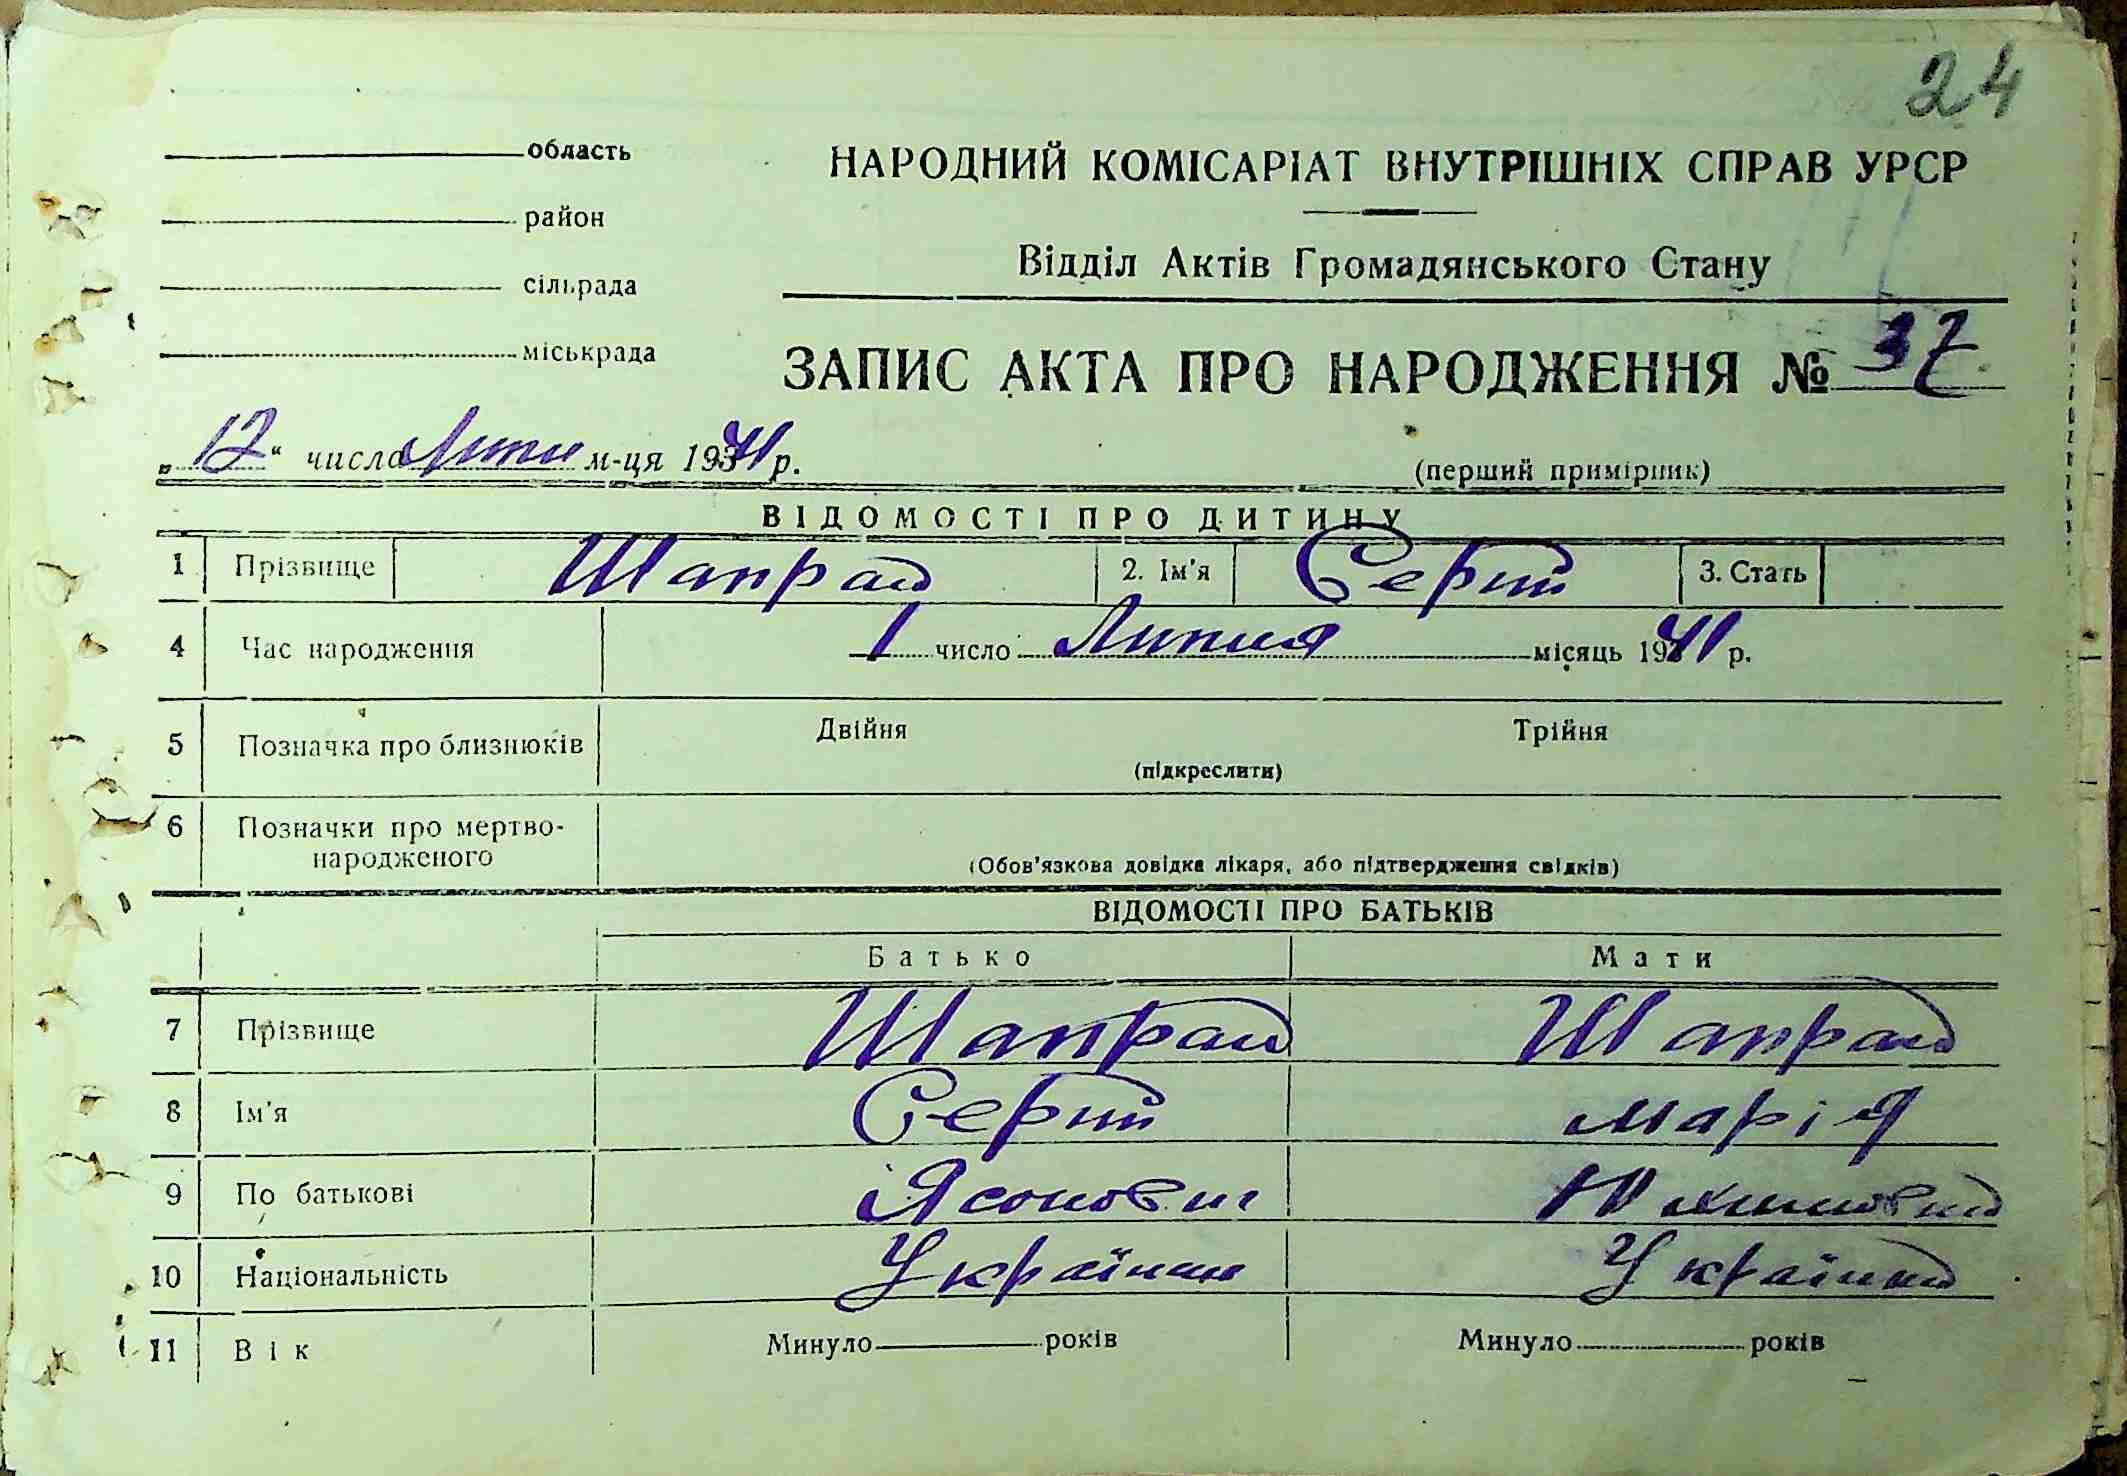 24
область
НАРОДНИЙ КОМІСАРІАТ ВНУТРІШНІХ СПРАВ УРСР
район
Відділ Актів Громадянського Стану
сільрада
міськрада
ЗАПИС АКТА ПРО НАРОДЖЕННЯ № 37
„12“ число м-ця 1941 р.
(перший примірник)
ВІДОМОСТІ ПРО ДИТИНУ
1 Прізвище Шапран 2. Ім'я Сергій 3. Стать
4 Час народження 1 число Липня місяць 1941 р.
5 Позначка про близнюків Двійня Трійня
(підкреслити)
6 Позначки про мертво-
народженого
(Обов'язкова довідка лікаря, або підтвердження свідків)
ВІДОМОСТІ ПРО БАТЬКІВ
Батько Мати
7 Прізвище Шапран Шапран
8 Ім'я Сергій Марія
9 По батькові Ясонович
10 Національність Українец Українка
11 Вік Минуло років Минуло років